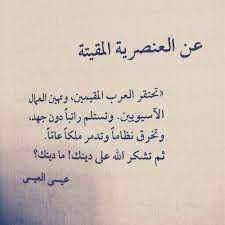 عن العنصرية المقيتة
«تحتقر العرب المقيمين، وتهين العمال
الآسيويين. وتستلم راتباً دون جهد،
وتخرق نظاماً وتدمر ملكاً عامّاً.
ثم تشكر الله على دينك! ما دينك؟
عيسى العيسى